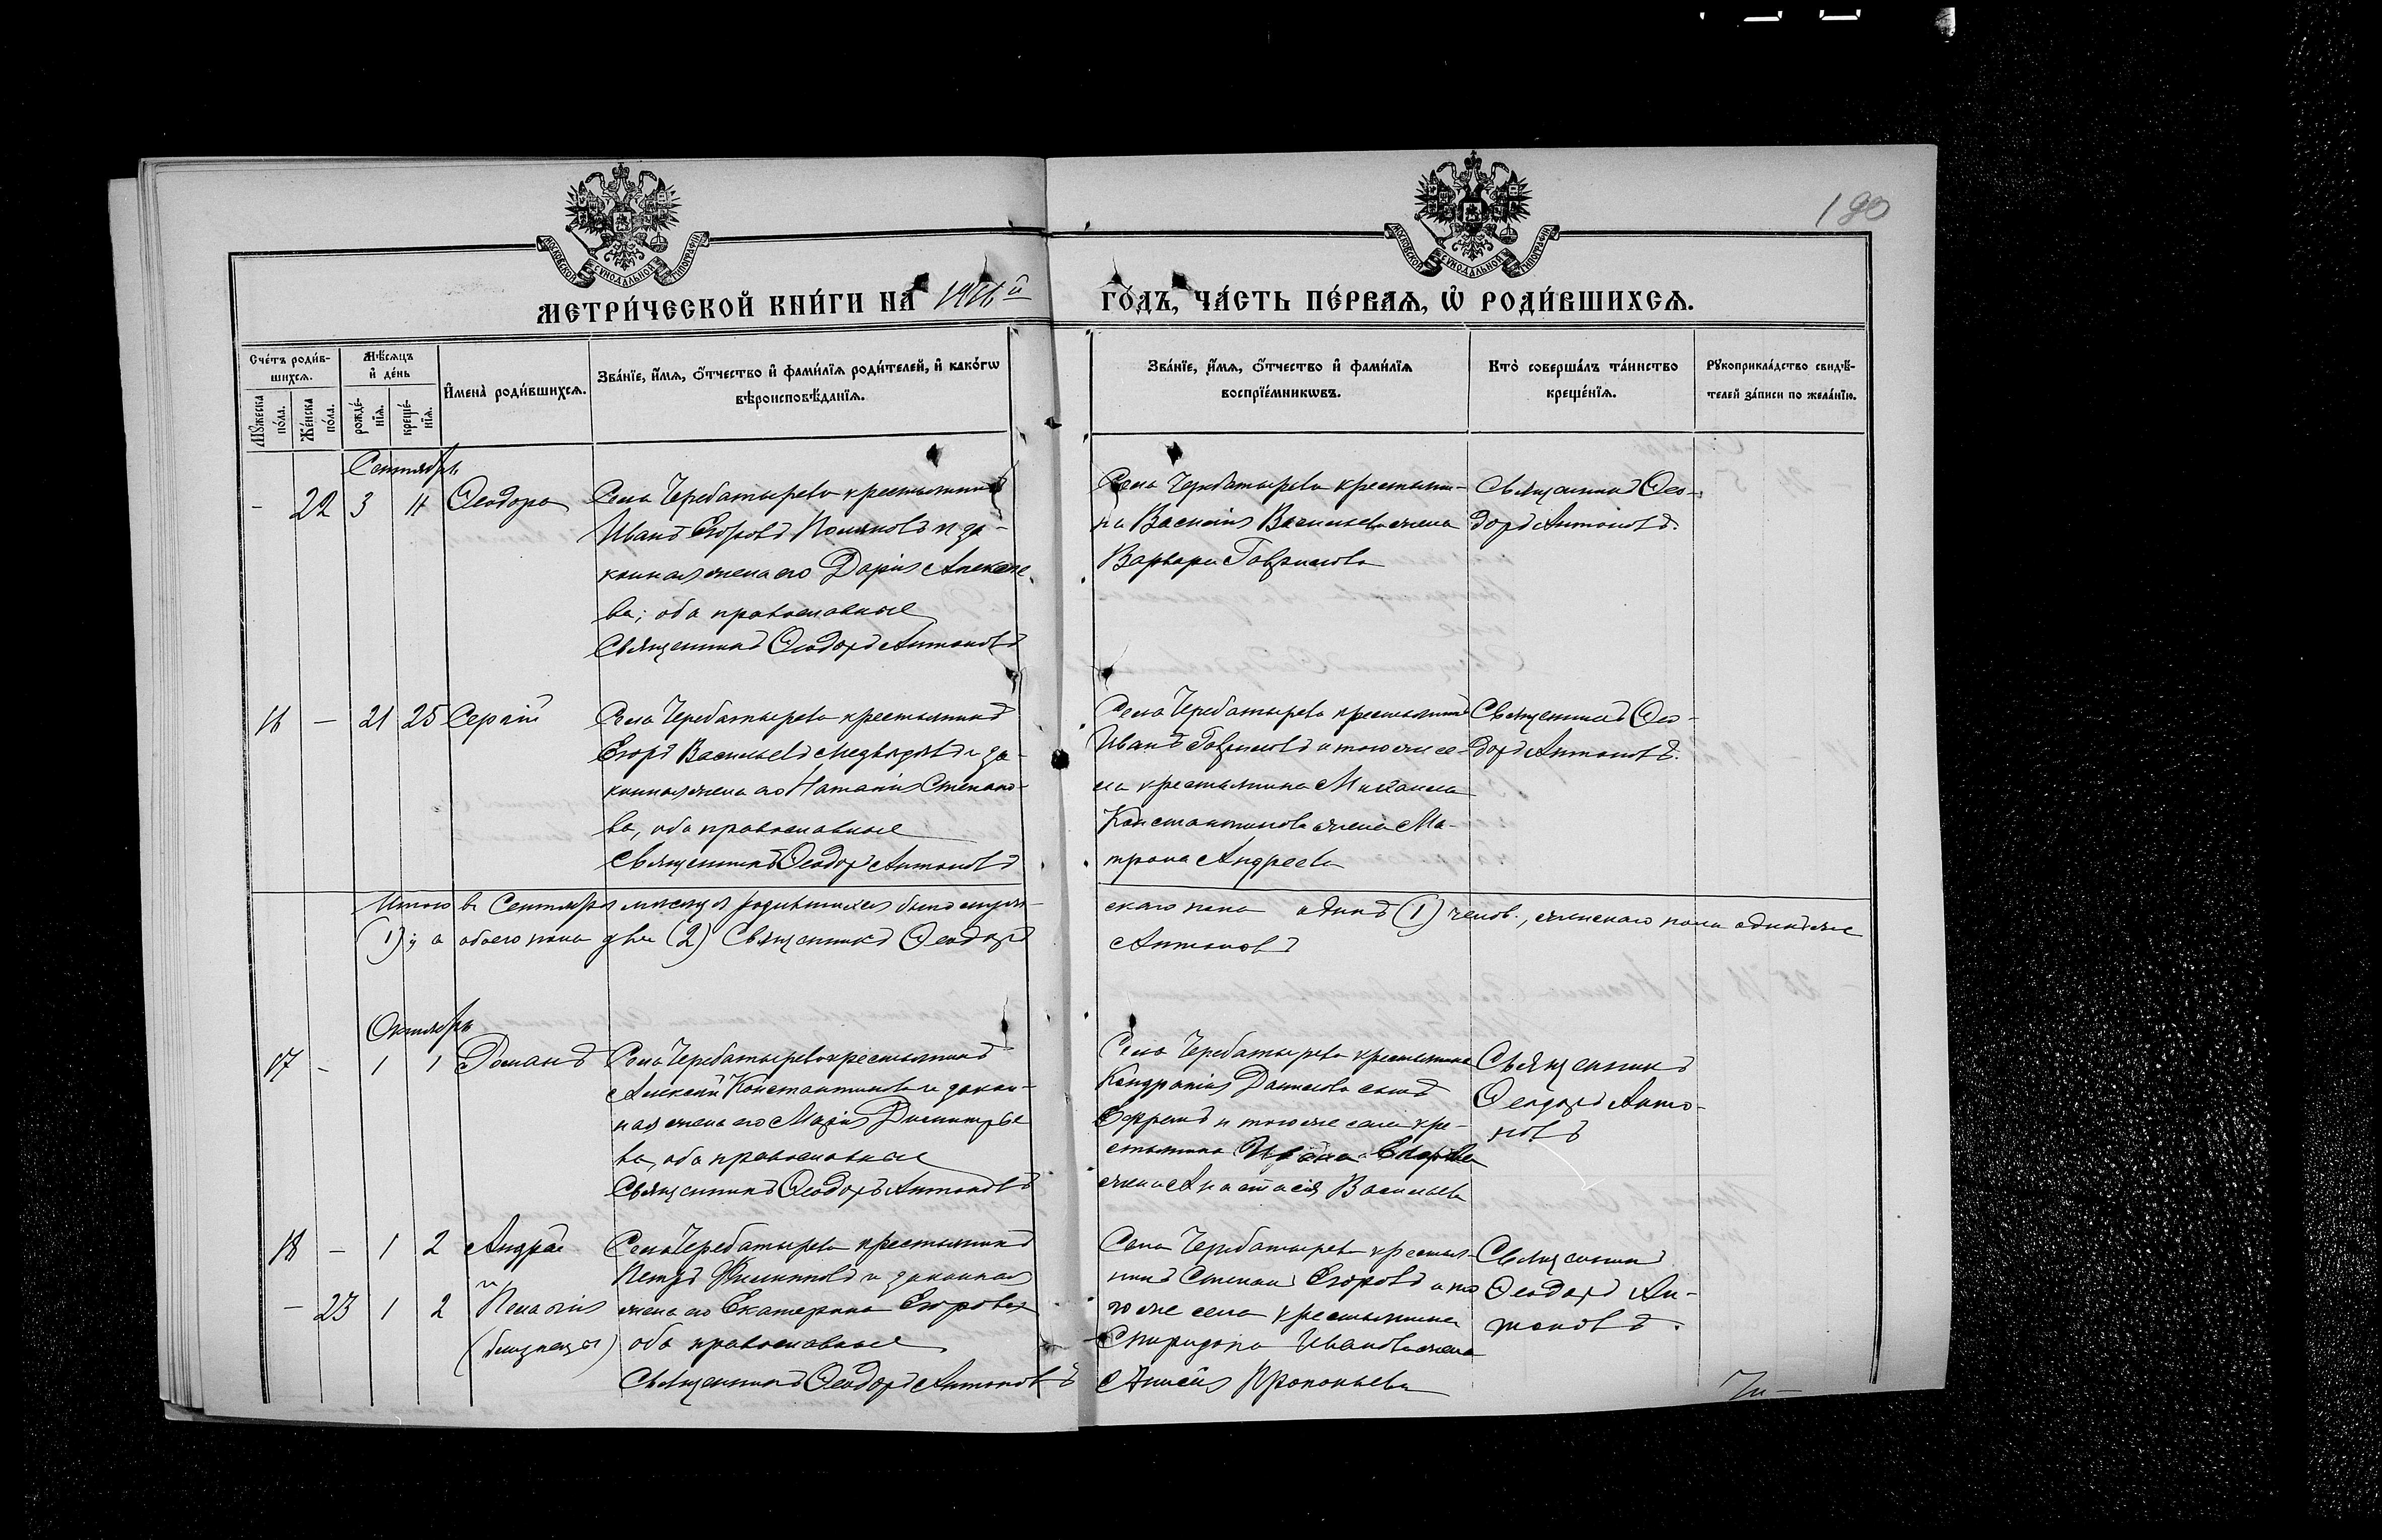 190
МОСКОВСКОЙ СѴНОДАЛЬНОЙ ТИПОГРАФІИ
МОСКОВСКОЙ СѴНОДАЛЬНОЙ ТИПОГРАФІИ
МЕТРИ́ЧЕСКОЙ КНИ́ГИ НА 1916й
ГО́ДЪ, ЧА́СТЬ ПЕ́РВАѦ, Ѽ РОДИ́ВШИХСѦ.
Сче́тъ роди́в-
шихсѧ.
Мꙋ́жеска по́ла.
Же́нска по́ла.
Мѣ́сѧцъ
и҆ де́нь
рожде́-
нїѧ.
креще́-
нїѧ.
И҆мена̀ роди́вшихсѧ.
Зва́нїе, и҆́мѧ, ѻ҆́тчество и҆ фами́лїѧ роди́телей, и҆ како́гѡ
вѣроисповѣ́данїѧ.
Зва́нїе, и҆́мѧ, ѻ҆́тчество и҆ фами́лїѧ
воспрїе́мникѡвъ.
Кто̀ соверша́лъ та́инство
креще́нїѧ.
Рꙋкоприкла́дство свидѣ́-
телей за́писи по жела́нїю.
Сентябрь
- 22 3 4 Ѳеодора
Села Черебатырева крестьянинъ
Иванъ Егоровъ и за-
конная жена его Дарія Алексѣе-
ва; оба православные
Священникъ Ѳеодоръ Антоновъ
Села Черебатырева крестьяни-
на Василія Васильева жена
Варвара Гаврилова
Священникъ Ѳео-
доръ Антоновъ.
16 — 21 25 Сергій
Села Черебатырева крестьянинъ
Егоръ Васильевъ Медвѣдевъ и за-
конная жена его Наталія Степано-
ва, оба православные
Священникъ Ѳеодоръ Антоновъ
Села Черебатырева крестьянинъ
Иванъ Гавриловъ и того же се-
ла крестьянина Михаила
Константинова жена Ма-
трона Андреева
Священникъ Ѳео-
доръ Антоновъ.
Итого въ Сентябрѣ мѣсяцѣ родившихся было муже-
скаго пола одинъ (1) челов., женскаго пола одинъ же
(1); а обоего пола два (2) Священникъ Ѳеодоръ
Антоновъ
Октябрь
17 - 1 1 Романъ
Села Черебатырева крестьянинъ
Алексѣй Константиновъ и закон-
ная жена его Марія Димитріе-
ва, оба православные
Священникъ Ѳеодоръ Антоновъ
Села Черебатырева крестьянина
Кондратія Данилова сынъ
Ефремъ и того же села кре-
стьянина Ивана Егорова
жена Анастасія Васильева
Священникъ
Ѳеодоръ Анто-
новъ
18 — 1 2 Андрей
и
- 23 1 2 Пелагія
(близнецы)
Села Черебатырева крестьянинъ
Петръ Филипповъ и законная
жена его Екатерина Егорова
оба православные
Священникъ Ѳеодоръ Антоновъ
Села Черебатырева крестья-
нинъ Степанъ Егоровъ и то-
го же села крестьянина
Спиридона Иванова жена
Анисія Прокопьева
Священникъ
Ѳеодоръ Ан-
тоновъ.